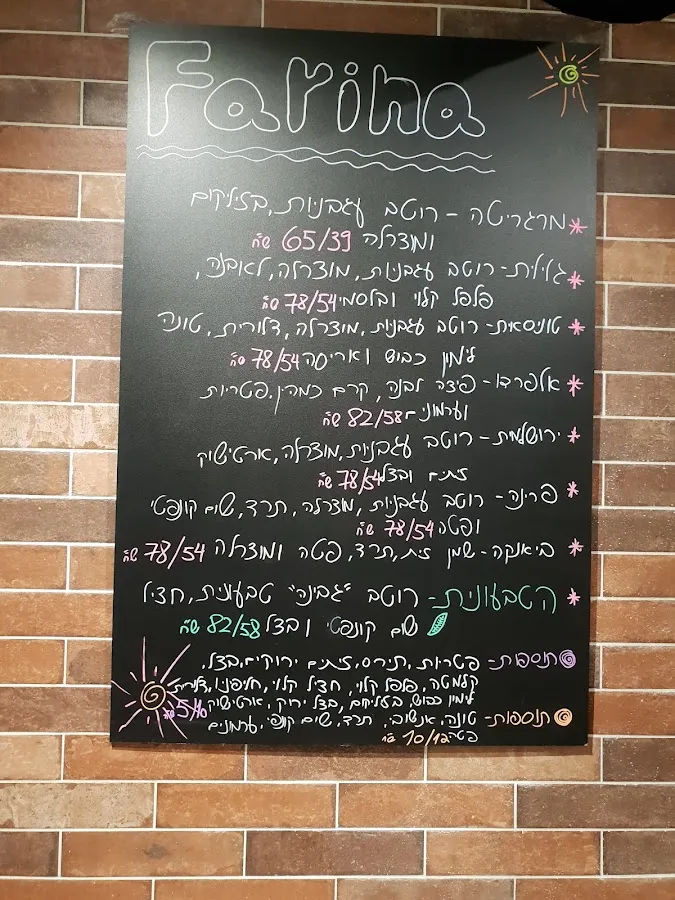 Farina
מרגריטה - רוטב עגבניות, בזיליקום
ומוצרלה 65/39 ש״ח
גלילית - רוטב עגבניות, מוצרלה, לאבנה,
פלפל קלוי ובלסמי 78/54 ש״ח
טוניסאית - רוטב עגבניות, מוצרלה, דלורית, טונה
לימון כבוש ואריסה 78/54 ש״ח
אלפרדו - פיצה לבנה, קרם כמהין, פטריות
וערמונים - 82/58 ש״ח
ירושלמית - רוטב עגבניות, מוצרלה, ארטישוק
זיתים ובצל 78/54 ש״ח
פרינה - רוטב עגבניות, מוצרלה, תרד, שום קונפטי
ופטה 78/54 ש״ח
ביאנקה - שמן זית, תרד, פטה ומוצרלה 78/54 ש״ח
הטבעונית - רוטב "גבינה" טבעונית, חציל
שום קונפטי ובצל 82/58 ש״ח
תוספות - פטריות, תירס, זיתים ירוקים, בצל,
קלמטה, פלפל קלוי, חציל קלוי, חלפניו, דלורית
לימון כבוש, בזיליקום, בצל ירוק, ארטישוק 5/10 ש״ח
תוספות - טונה, אנשובי, תרד, שום קונפי, ערמונים
פטה 10/12 ש״ח